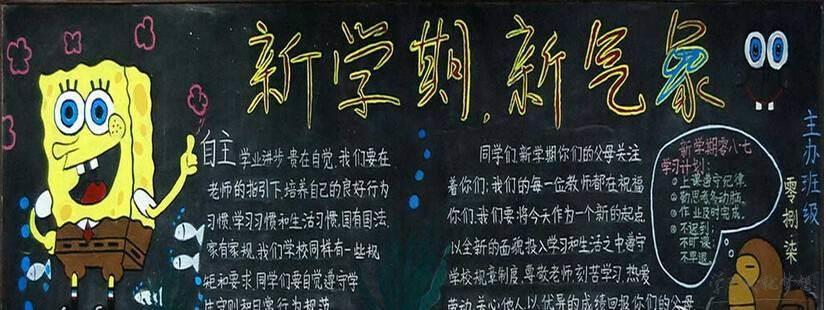 新学期,新气象
自主 学业进步,贵在自觉,我们要在
老师的指引下,培养自己的良好行为
习惯,学习习惯和生活习惯,国有国法,
家有家规,我们学校同样有一些规
矩和要求,同学们要自觉遵守学
生守则和日常行为规范
同学们,新学期你们的父母关注
着你们;我们的每一位教师都在祝福
你们,我们要将今天作为一个新的起点,
以全新的面貌投入学习和生活之中遵守
学校规章制度,尊敬老师,刻苦学习,热爱
劳动,关心他人,以优异的成绩回报你们的父母
新学期零八七
学习计划:
①上课遵守纪律,
②勤思考多动脑,
③作业及时完成,
④不迟到;
不旷课;
不早退。
主办班级:
零捌柒